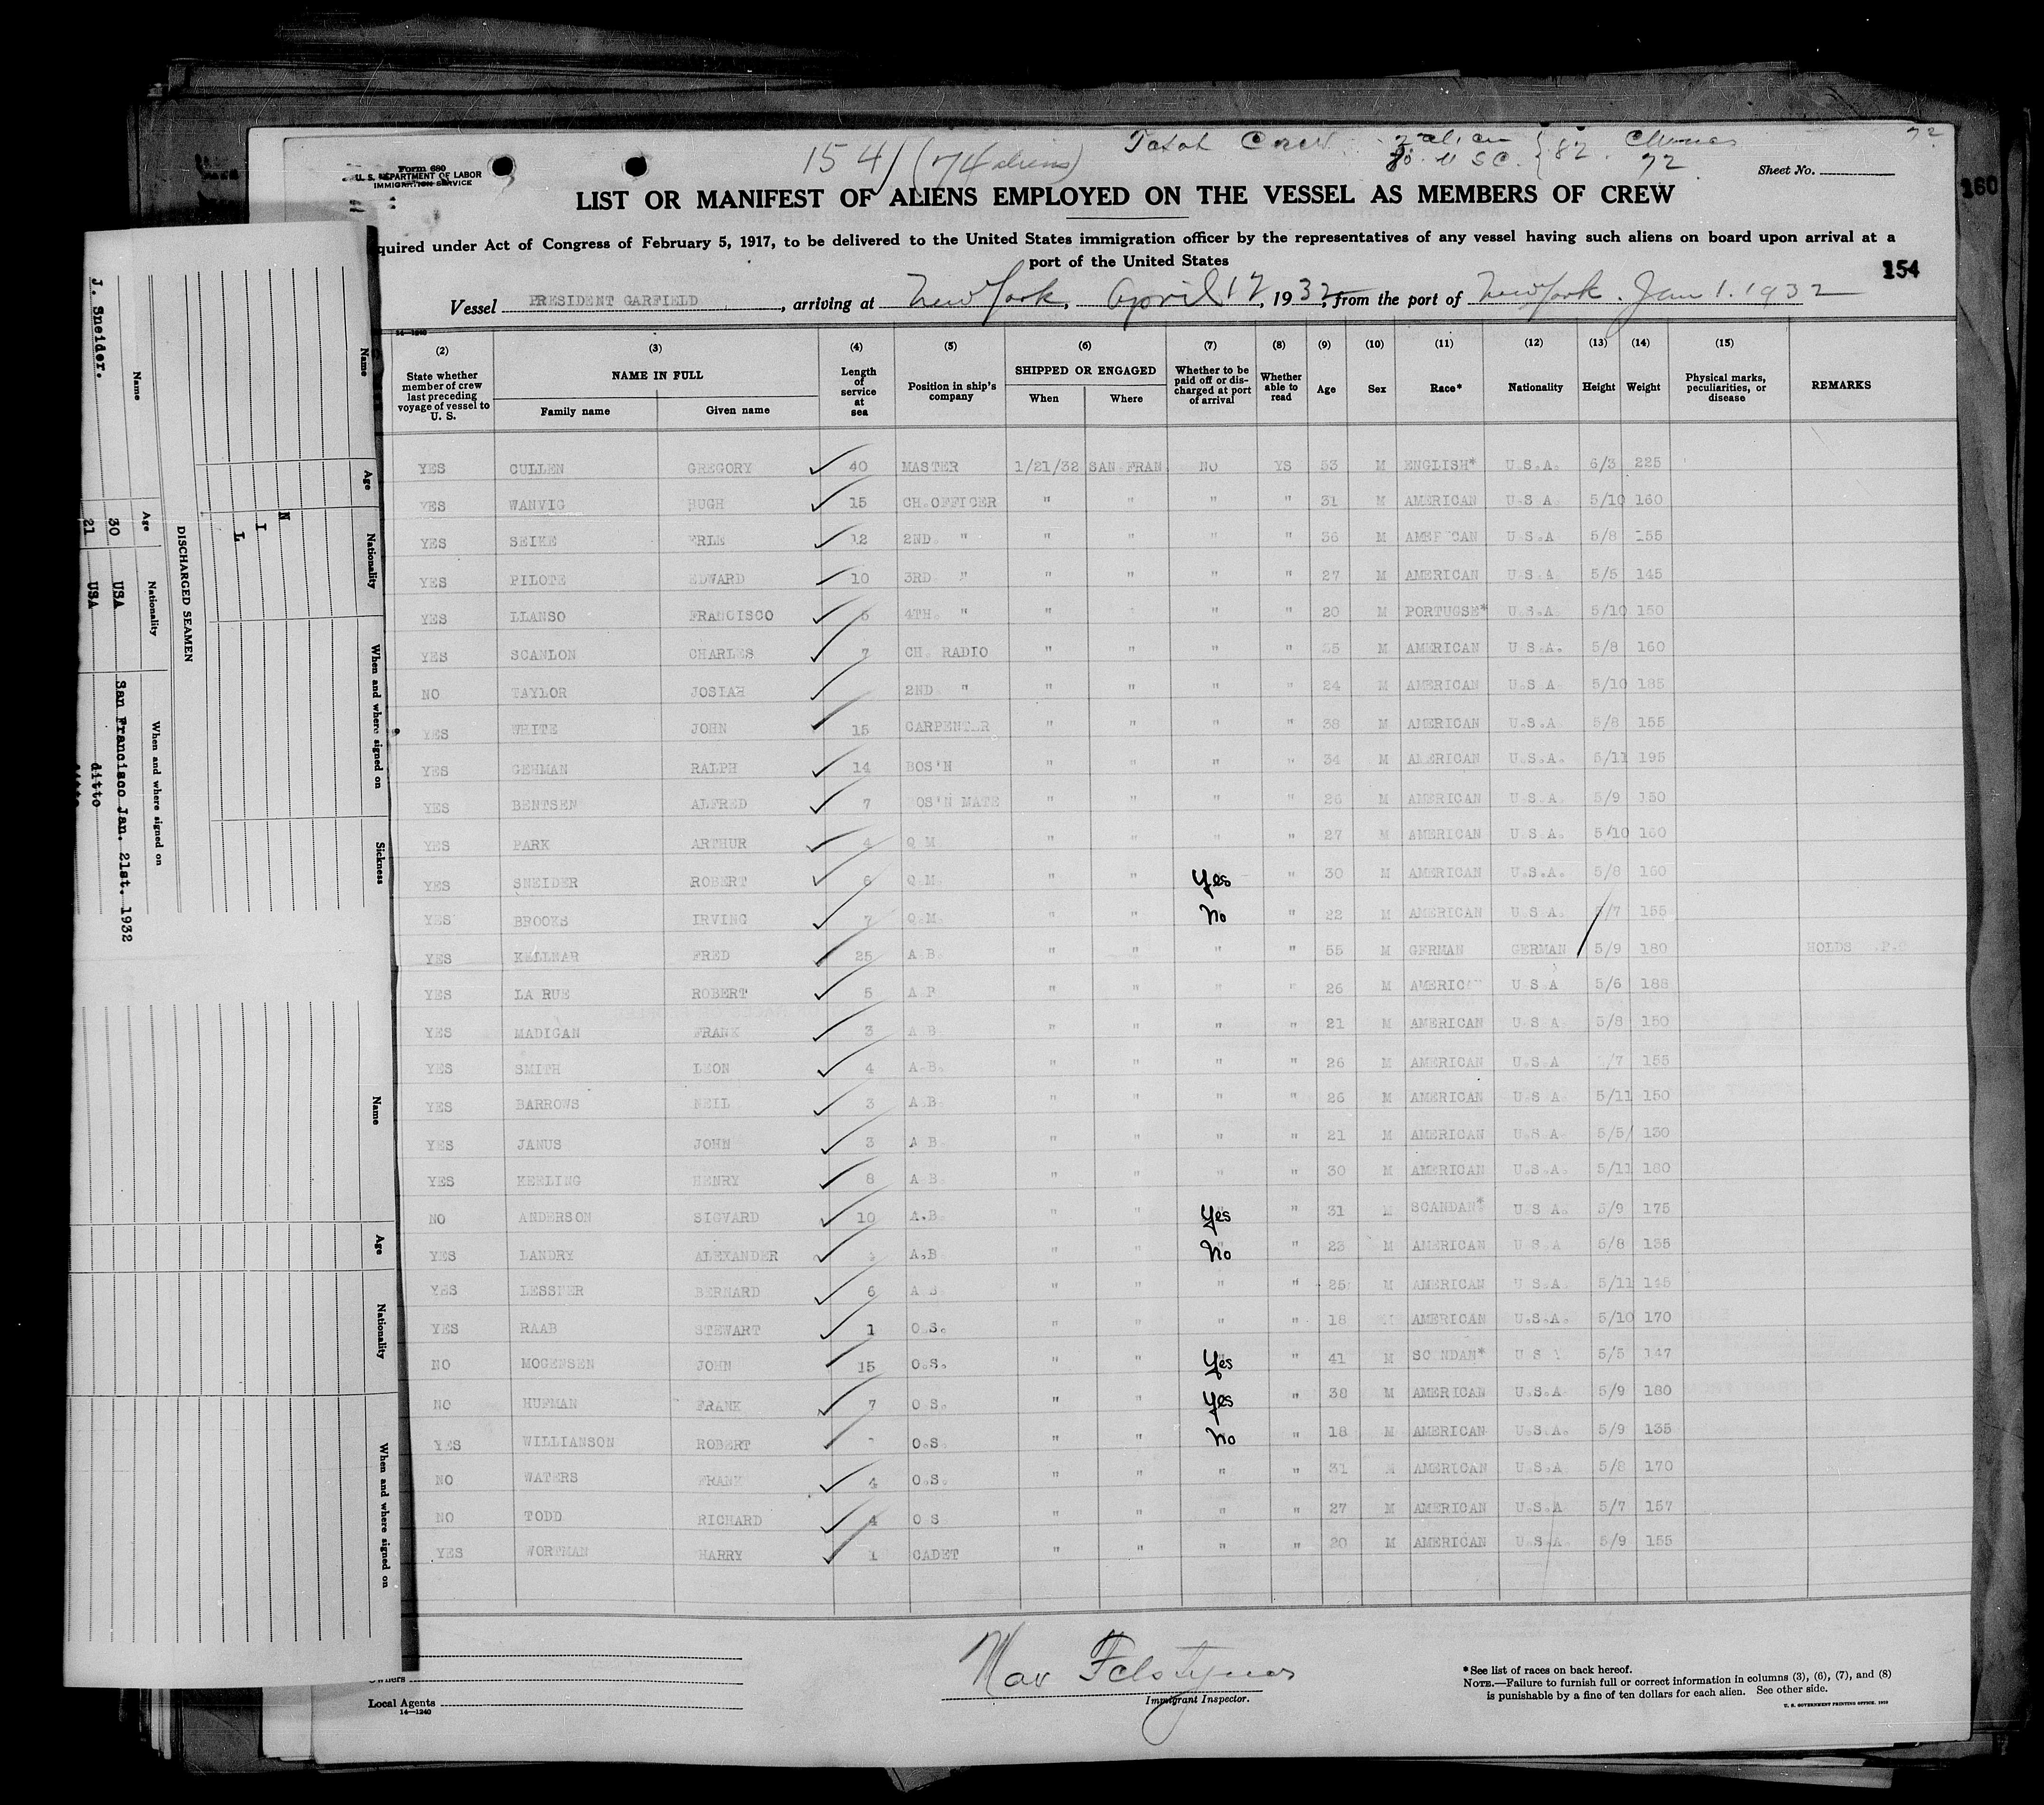 154 (74 aliens) Total Crew 2 alien 80 U S C. } 82. Chinese 72
Form 680
U. S. DEPARTMENT OF LABOR
IMMIGRATION SERVICE
Sheet No.
160
LIST OR MANIFEST OF ALIENS EMPLOYED ON THE VESSEL AS MEMBERS OF CREW
quired under Act of Congress of February 5, 1917, to be delivered to the United States immigration officer by the representatives of any vessel having such aliens on board upon arrival at a
port of the United States
154
Vessel PRESIDENT GARFIELD, arriving at New York, April 12, 1932, from the port of New York. Jan 1. 1932
14—1240
(2) (3) (4) (5) (6) (7) (8) (9) (10) (11) (12) (13) (14) (15)
State whether member of crew last preceding voyage of vessel to U. S. NAME IN FULL Family name Given name Length of service at sea Position in ship's company SHIPPED OR ENGAGED When Where Whether to be paid off or discharged at port of arrival Whether able to read Age Sex Race* Nationality Height Weight Physical marks, peculiarities, or disease REMARKS
YES CULLEN GREGORY 40 MASTER 1/21/32 SAN FRAN NO YS 53 M ENGLISH* U.S.A. 6/3 225
YES WANVIG HUGH 15 CH.OFFICER " " " " 31 M AMERICAN U.S A. 5/10 160
YES SEIKE ERLE 12 2ND. " " " " " 36 M AMERICAN U S.A 5/8 155
YES PILOTE EDWARD 10 3RD " " " " " 27 M AMERICAN U.S.A 5/5 145
YES LLANSO FRANCISCO 5 4TH. " " " " " 20 M PORTUGSE* U.S.A 5/10 150
YES SCANLON CHARLES 7 CH. RADIO " " " " 35 M AMERICAN U S.A. 5/8 160
NO TAYLOR JOSIAH 2ND " " " " " 24 M AMERICAN U.S A 5/10 185
YES WHITE JOHN 15 CARPENTER " " " " 38 M AMERICAN U.S.A 5/8 155
YES GEHMAN RALPH 14 BOS'N " " " " 34 M AMERICAN U.S.A. 5/11 195
YES BENTSEN ALFRED 7 BOS'N MATE " " " " 26 M AMERICAN U S.A. 5/9 150
YES PARK ARTHUR 4 Q M " " " " 27 M AMERICAN U S.A. 5/10 160
YES SNEIDER ROBERT 6 Q.M. " " Yes " 30 M AMERICAN U.S.A. 5/8 160
YES BROOKS IRVING 7 Q.M. " " No " 22 M AMERICAN U S.A. 5/7 155
YES KELLNAR FRED 25 A B. " " " " 55 M GERMAN GERMAN 5/9 180 HOLDS
YES LA RUE ROBERT 5 A B " " " " 26 M AMERICAN U S A 5/6 188
YES MADIGAN FRANK 3 A B " " " " 21 M AMERICAN U S A 5/8 150
YES SMITH LEON 4 A.B. " " " " 26 M AMERICAN U.S.A /7 155
YES BARROWS NEIL 3 A B. " " " " 26 M AMERICAN U.S A 5/11 150
YES JANUS JOHN 3 A B. " " " " 21 M AMERICAN U.S.A 5/5 130
YES KEELING HENRY 8 A B. " " " 30 M AMERICAN U.S.A. 5/11 180
NO ANDERSON SIGVARD 10 A.B " " Yes " 31 M SCANDAN* U S A. 5/9 175
YES LANDRY ALEXANDER A.B " " No " 23 M AMERICAN U S A 5/8 135
YES LESSNER BERNARD 6 A B " " " " 25 M AMERICAN U S.A 5/11 145
YES RAAB STEWART 1 O.S. " " " " 18 M AMERICAN U.S.A. 5/10 170
NO MOGENSEN JOHN 15 O.S. " " Yes " 41 M SCANDAN* U S A 5/5 147
NO HUFMAN FRANK 7 O S. " " Yes " 38 M AMERICAN U.S.A 5/9 180
YES WILLIANSON ROBERT O.S " " No " 18 M AMERICAN U.S.A. 5/9 135
NO WATERS FRANK 4 O.S. " " " " 31 M AMERICAN U.S.A 5/8 170
NO TODD RICHARD 4 O S " " " " 27 M AMERICAN U.S.A 5/7 157
YES WORTMAN HARRY 1 CADET " " " " 20 M AMERICAN U.S.A. 5/9 155
Owners
Local Agents
14—1240
Immigrant Inspector.
*See list of races on back hereof.
NOTE.—Failure to furnish full or correct information in columns (3), (6), (7), and (8)
is punishable by a fine of ten dollars for each alien. See other side.
U. S. GOVERNMENT PRINTING OFFICE
Name Age Nationality When and where signed on Sickness
N I L
DISCHARGED SEAMEN
Name Age Nationality When and where signed on
30 USA San Francisco Jan. 21st. 1932
J. Sneider. 21 USA ditto
Name Age Nationality When and where signed on